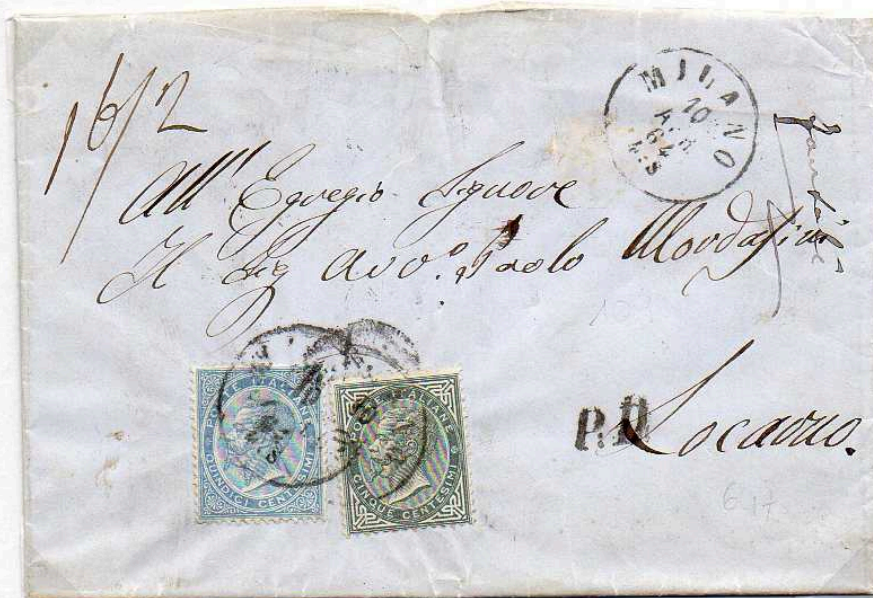 16/2
MILANO
10
APR
64
4 S
All' Egregio Signore
Il Sig Avvo. Paolo Mordasini
franca
POSTE ITALIANE
QUINDICI CENTESIMI
POSTE ITALIANE
CINQUE CENTESIMI
P.D.
Locarno.
6-17